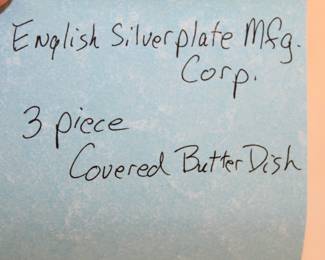 English Silverplate Mfg.
Corp.
3 piece
Covered Butter Dish